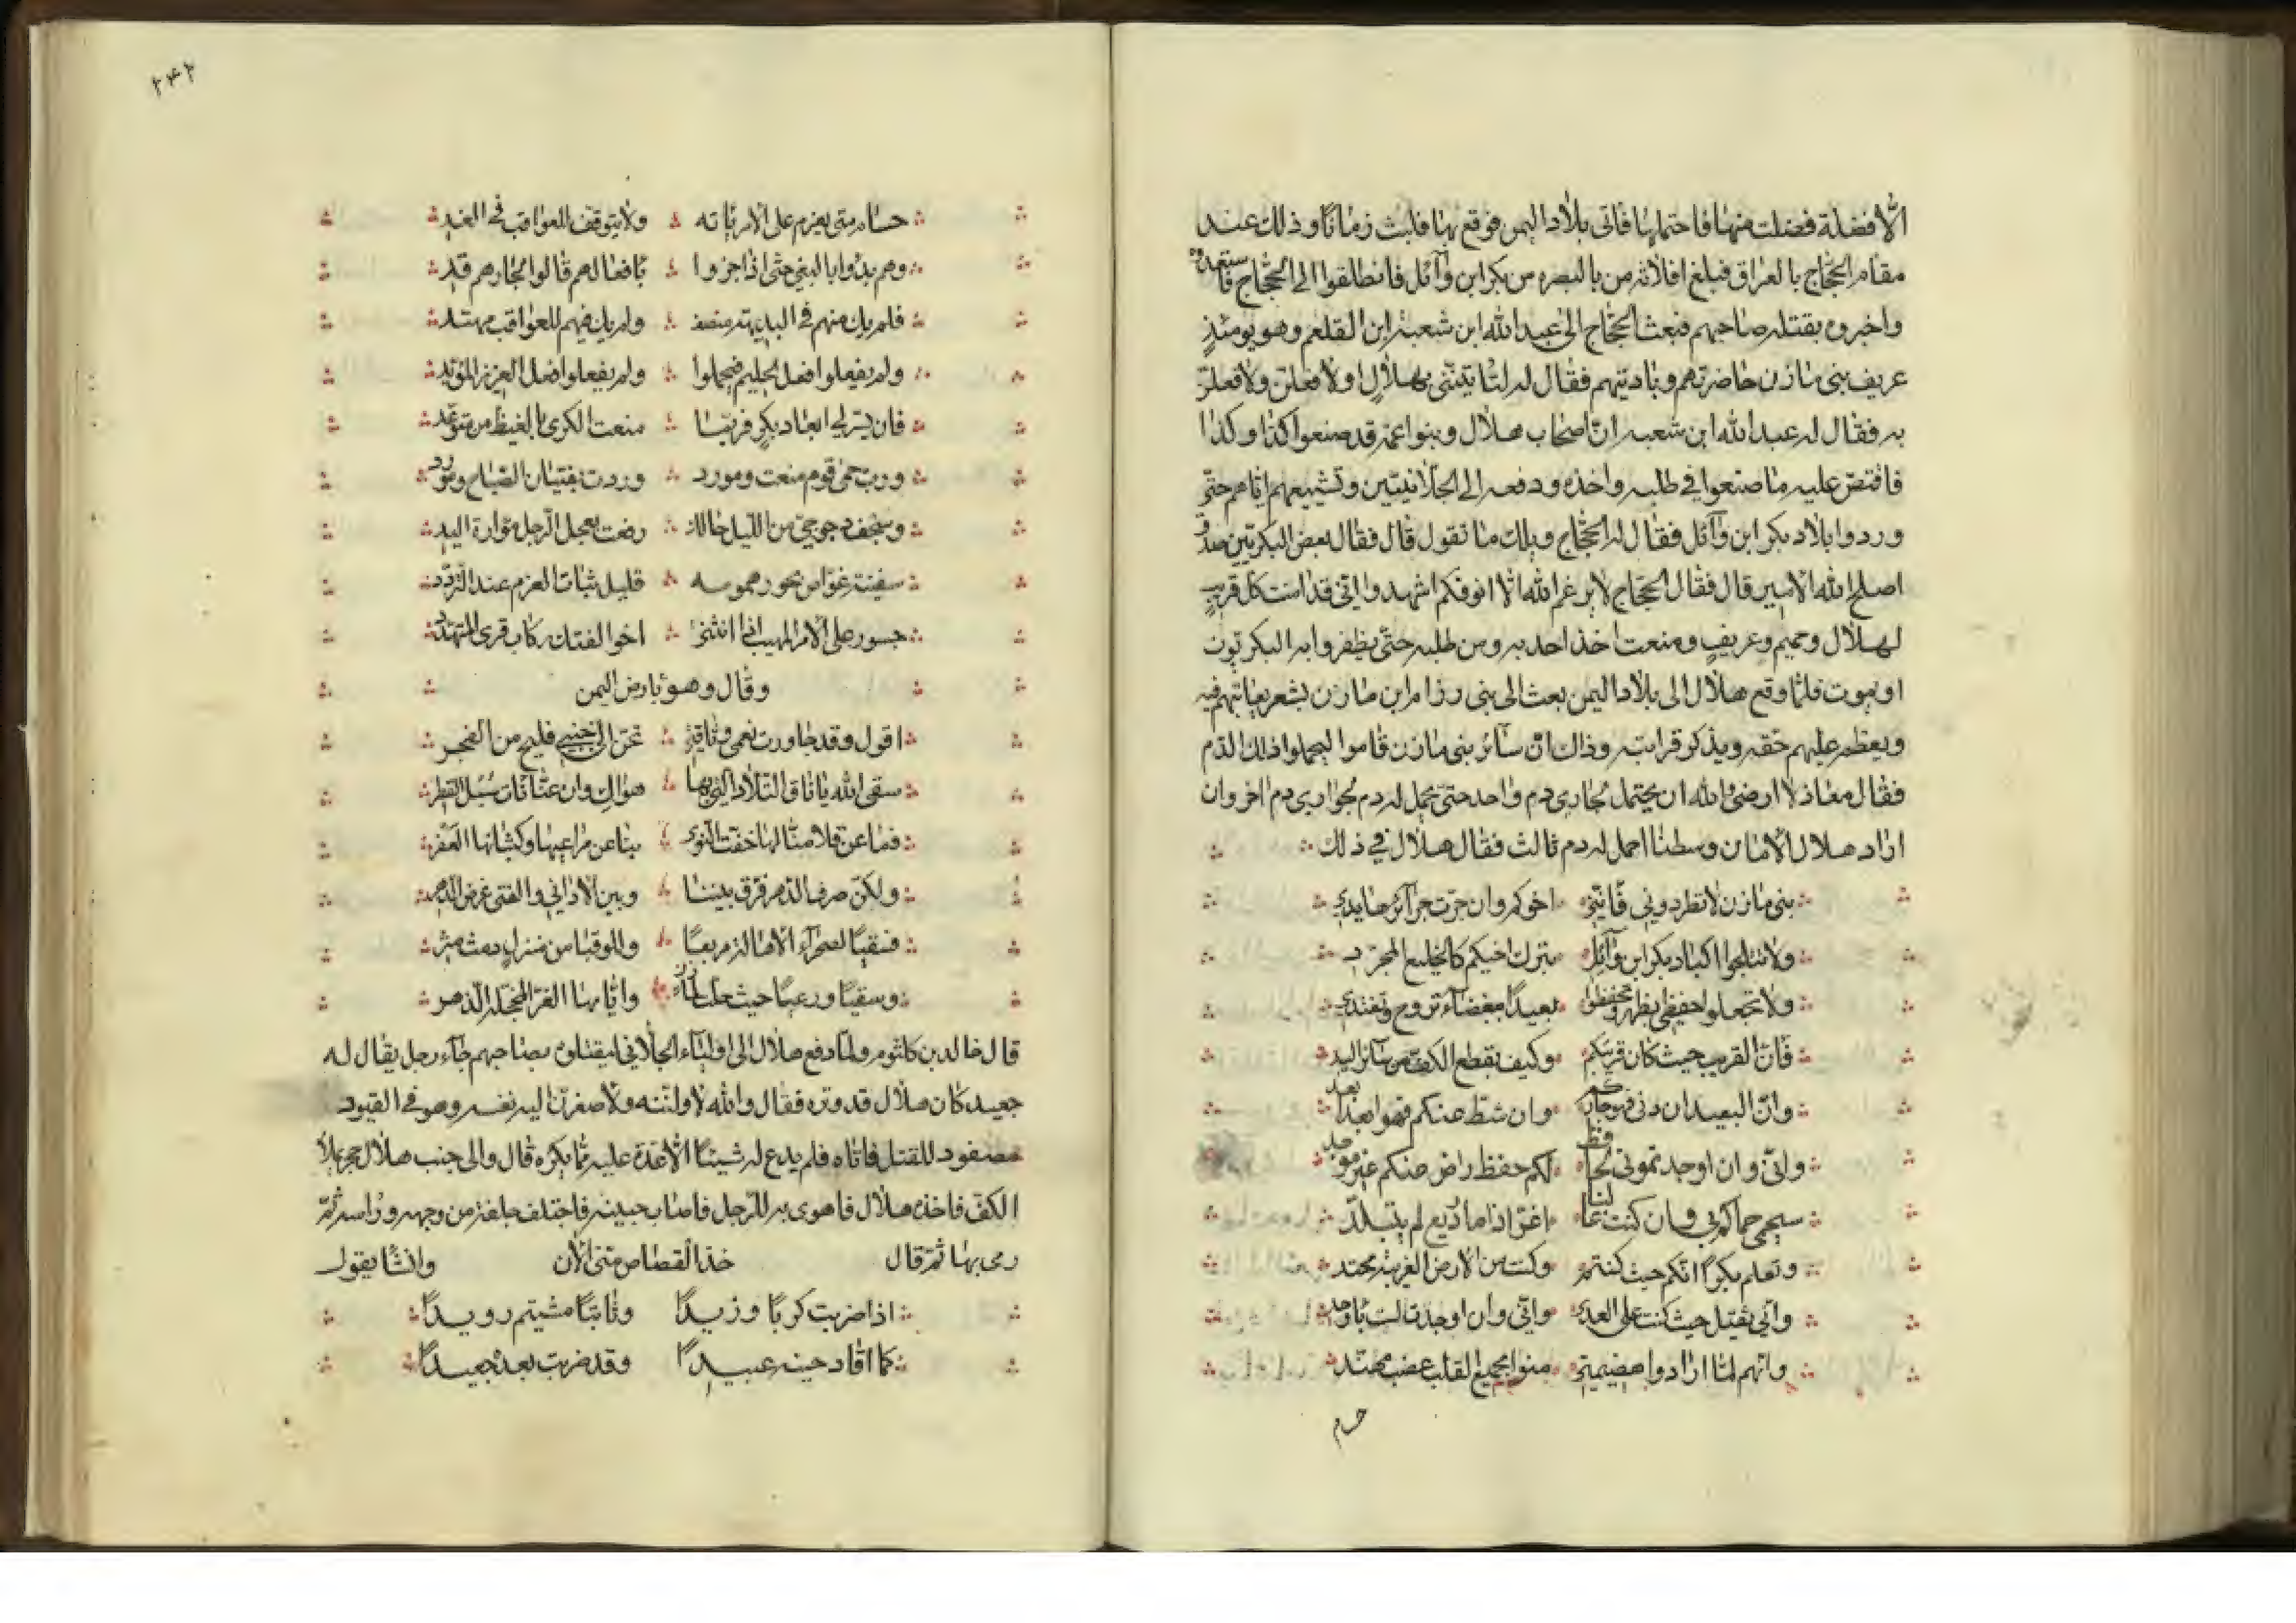 الا فضلة فضلت منها فاحتملها فاتى بلاد اليمن فوقع بها فلبث زمانا وذلك عند
مقام الحجاج بالعراق فبلغ افلاته من بالبصره من بكر ابن وآئل فانطلقوا الى الحجاج فاستعدوه
واخبروه بقتله صاحبهم فبعث الحجاج الى عبد الله ابن شعبة ابن القلعم وهو يومئذٍ
عريف بنى مازن حاضرتهم وباديتهم فقال له لتاتينى بهلالٍ اولا فعلن ولا فعلن
به فقال له عبد الله ابن شعبه ان اصحاب هلال وبنو اعمه قد صنعوا كذا وكذا
فاقتص عليه ما صنعوا في طلبه واخذه ودفعه الى الجلانيتين وتشييعهم اياهم حتى
وردوا بلاد بكر ابن وآئل فقال له الحجاج ويلك ما تقول قال فقال بعض البكريين صدق
اصلح الله الامير قال فقال الحجاج لا يرغم الله الا انوفكم اشهدوا انى قد امنت كل قريبٍ
لهلال وحميم وعريفٍ ومنعت اخذ احد به ومن طلبه حتى يظفر وا به البكريون
او يموت فلما وقع هلال الى بلاد اليمن بعث الى بنى رزام ابن مازن بشعر يعاتبهم فيه
ويعظم عليهم حقه ويذكر قرابته وذاك ان سآئر بنى مازن قاموا ليحملوا ذلك الدم
فقال معاذ لا ارضى والله ان يحتمل لجاري دم واحد حتى يحمل له دم لجواري دم اخر وان
اراد هلال الامان وسطنا احمل له دم ثالث فقال هلال في ذلك
بنى مازن لا تطردوني فاننى اخوكم وان جرت جرآئرها يدي
ولا تثلجوا اكباد بكر ابن وآئل بترك اخيكم كالخليع المجرد
ولا تجعلوا حفظي بظهر وتحفظوا بعيدًا ببغضآء تروح وتغتدي
فان القريب حيث كان قريبكم وكيف بقطع الكف من سآئر اليد
وان البعيد ان دنى فهو جاركم وان شط عنكم فهو ابعد ابعد
وانى وان اوجدتموني لحافظ لكم حفظ راض عنكم غير موجد
سيحمى حماكم بي وان كنت غائبا اغر اذا ما ريع لم يتبلد
وتعلم بكر انكم حيث كنتم وكنت من الارض الغريبة محتد
وانى ثقيل حيث كنت على العدى وانى وان اوجدت لست باوحد
وانهم لما ارادوا هضيمتى منوا بجميع القلب عضب مهند
حسام
٢٤٢
حسام متى يعزم على الامر ياته ولا يتوقف للعواقب في الغد
وهم بدؤا بالبغي حتى اذا جزوا بافعالهم قالوا لجازهم قد
فلم يك منهم في البديهة منصف ولم يك فيهم للعواقب مهتد
ولم يفعلوا فعل الحليم فيجملوا ولم يفعلوا فعل العزيز المؤيد
فان يسر لي ابعاد بكر فربما منعت الكرى بالغيظ من متوعد
ورب حمى قوم منعت ومورد وردت بفتيان الصباح ومورد
وسجف دجوجي من الليل حالك رفعت بعجلى الرجل موارة اليد
سفينة غواص بحور همومه قليل ثبات العزم عند التردد
جسور على الامر المهيب اذا انثنى اخوا الفتك ركاب قرى المتهدد
وقال وهو بارض اليمن
اقول وقد جاورت نعمى وناقتي تحن الى جنبى فليج من الفجر
سقى الله يا ناق البلاد التى بها هواك وان عنا نات سبل القطر
فما عن قلا منا لها خفت النوى بنا عن مراعيها وكثبانها العفر
ولكن صرف الدهر فرق بيننا وبين الاداني والفتى غرض الدهر
فسقيًا لصحرآء الاهالة مربعًا وللوقبا من منزلٍ دمث مثر
وسقيًا ورعيًا حيث حلت لمازن وايامها الغر المحجلة الزهر
قال خالد بن كلثوم ولما دفع هلال الى اولياء الجلاني ليقتلوه بصاحبهم جآء رجل يقال له
جعيد كان هلال قد وتره فقال والله لاوانبنه ولاصغرن اليه نفسه وهو في القيود
مصفود للقتل فاتاه فلم يدع له شيئًا الا عده عليه مما يكره قال والى جنب هلال حجر يملأ
الكف فاخذه هلال فاهوى به للرجل فاصاب جبينه فاجتلف جلفة من وجهه وراسه ثم
رمى بها ثم قال خذ القصاص منى الان وانشا يقول
اذا ضربت كربًا وزيدًا وثابتًا مشيتم رويدًا
كما اقاد حينه عبيدًا وقد ضربت بعده جعيدًا